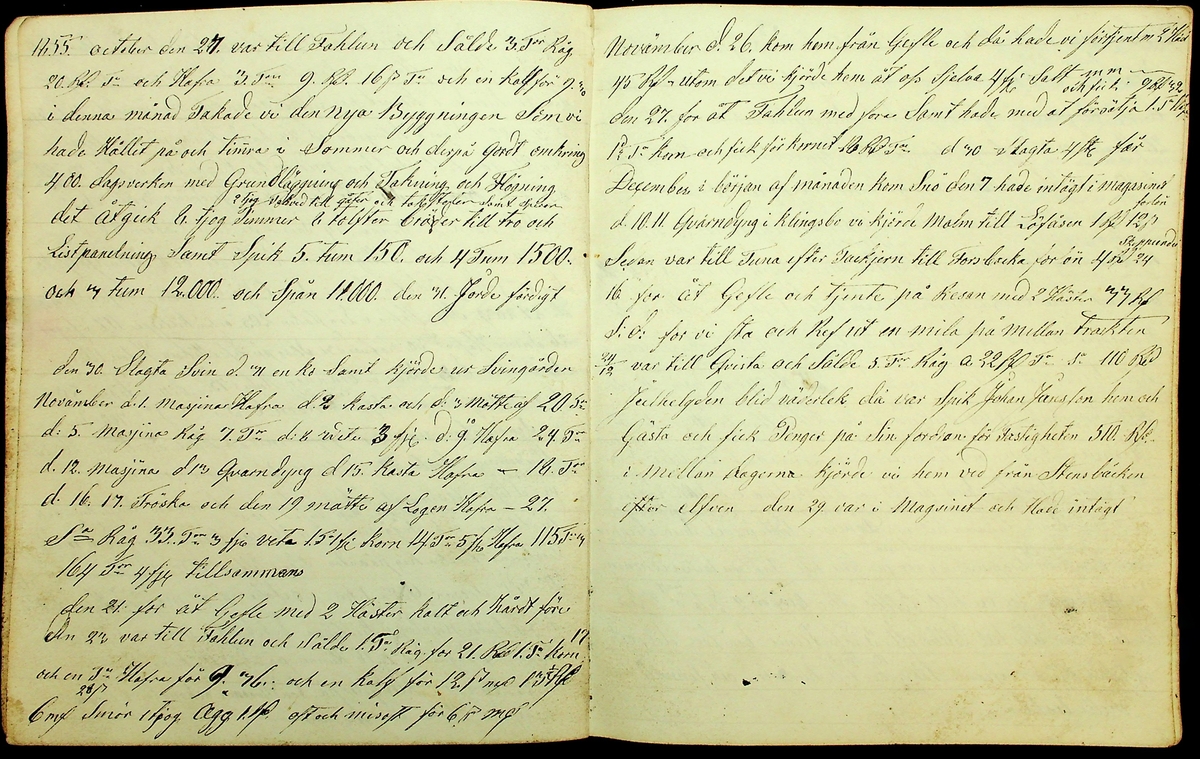 1855. october den 27. var till Fahlun och Sålde 3. Tnr Råg
20. Rd. Tn och Hafra 3. Tnr 9. Rd. 16 s Tn och en Kalf för 9.
i denna månad Takade vi den nya Byggningen Som vi
hade Hållit på och timra i Sommer och derpå Gordt omkring
400. dagsverken med Grundläggning och Takning och Högning
det åtgick 6 tjog Timmer 6 tolfter bräder till tro och
Listpanelning Samt Spik 5. tum 150. och 4 Tum 1500.
och 3 tum 12.000. och Spån 11000. den 31. Jorde färdigt
den 30. Slagta Svin d. 31 en ko Samt kjörde ur Svingården
Novämber d. 1. Masjina Hafra d. 2 Kasta och d. 3 Mätte af 20 Tn
d. 5. Masjina Råg 7. Tn d. 8 vete 3 fj. d. 9. Hafra 24. Tn
d. 12. Masjina d 13 Qvarndyng d 15. Kasta Hafra – 18. Tnr
d. 16. 17. Tröska och den 19 mätte af Logen Hafra – 27.
Sa Råg 33. Tnr 3 fj vete 1. Tn fj Korn 14 Tnr 5 fj Hafra 115 Tn
164 Tnr 4 fj tillsammans
den 21. for åt Gefle med 2 Häster kalt och hårdt före
den 23 var till Fahlun och Sålde 1. Tn Råg for 21. Rd 1. Tn Korn 17
och en Tn Hafra för 9. 36. och en Kalf för 12
6 Smör 1 tjog Ägg ost och miseft för 6
Novämber d. 26. kom hem från Gefle och då hade vi förtjent m 2 Häst
45 Rd – utom det vi kjörde hem åt os Sjelva 4 Salt
den 27. for åt Fahlun med fora Samt hade med at försälja 1.
Tn Kun och fick för kornet 16 Rd Tn d 30 Slagta 4 får
December i början af månaden kom Snö den 7 hade intågt i magasinet
d. 10. 11. Qvarndyng i Klingsbo vi kjörde Malm till Löfåsen
Sedan var till Tuna efter Tackjern till Forsbacka för ön
16 for åt Gefle och tjente på Resan med 2 Häster 33 Rd
for vi sta och Ref ut en mila på Mellan trackten
21/12 var till Qvista och Sålde 5. Tnr Råg a 22 Rd Tn s. 110 Rd
Julhelgden blid väderlek då var Spik Johan Jansson hem och
Gästa och fick Penger på Sin fordran för Fastigheten 310. Rd.
i Mellan dagerna kjörde vi hem ved från Stensbäcken
efter Elfven den 29 var i Magsinet och Hade intågt